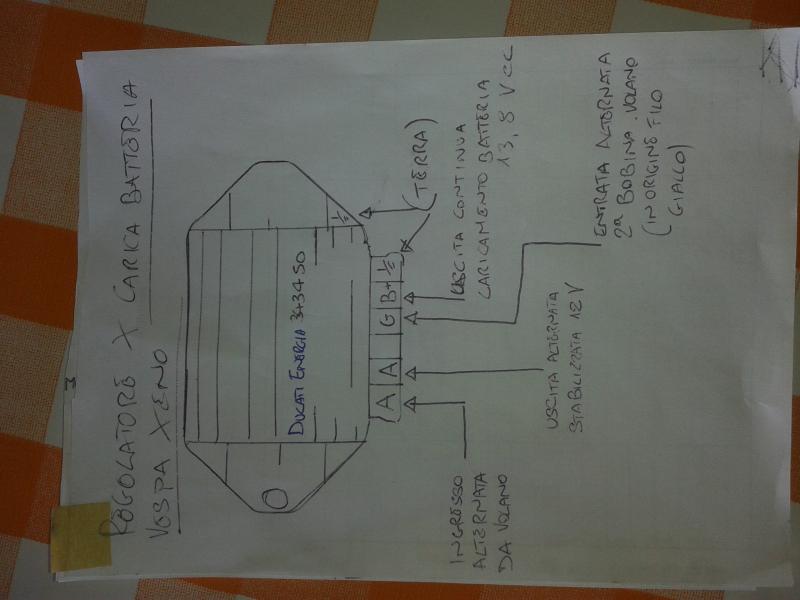 REGOLATORE X CARICA BATTERIA
VESPA XENO
DUCATI ENERGIA 343450
A A G B+
(TERRA)
INGRESSO
ALTERNATA
DA VOLANO
USCITA ALTERNATA
STABILIZZATA 12V
USCITA CONTINUA
CARICAMENTO BATTERIA
13,8 VCC
ENTRATA ALTERNATA
2a BOBINA VOLANO
(IN ORIGINE FILO
GIALLO)